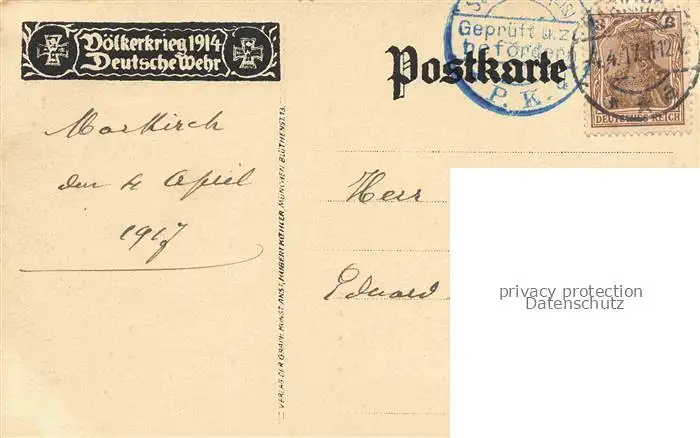 Völkerkrieg 1914
Deutsche Wehr
Postkarte
Geprüft u. z.
beförder
P. K.
4.4.17. 11-12V.
DEUTSCHES REICH
Markirch
den 4 April
1917
Herr
Eduard
VERLAG DER GRAPH. KUNSTANST. HUBERT KÖHLER, MÜNCHEN, BLÜTHENSTR.
privacy protection
Datenschutz